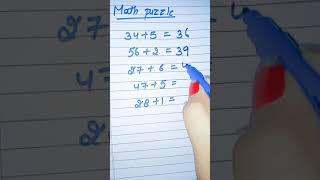 Math puzzle
34+5 = 36
56+2 = 39
27+6 = 4
47+5 =
28+1 =